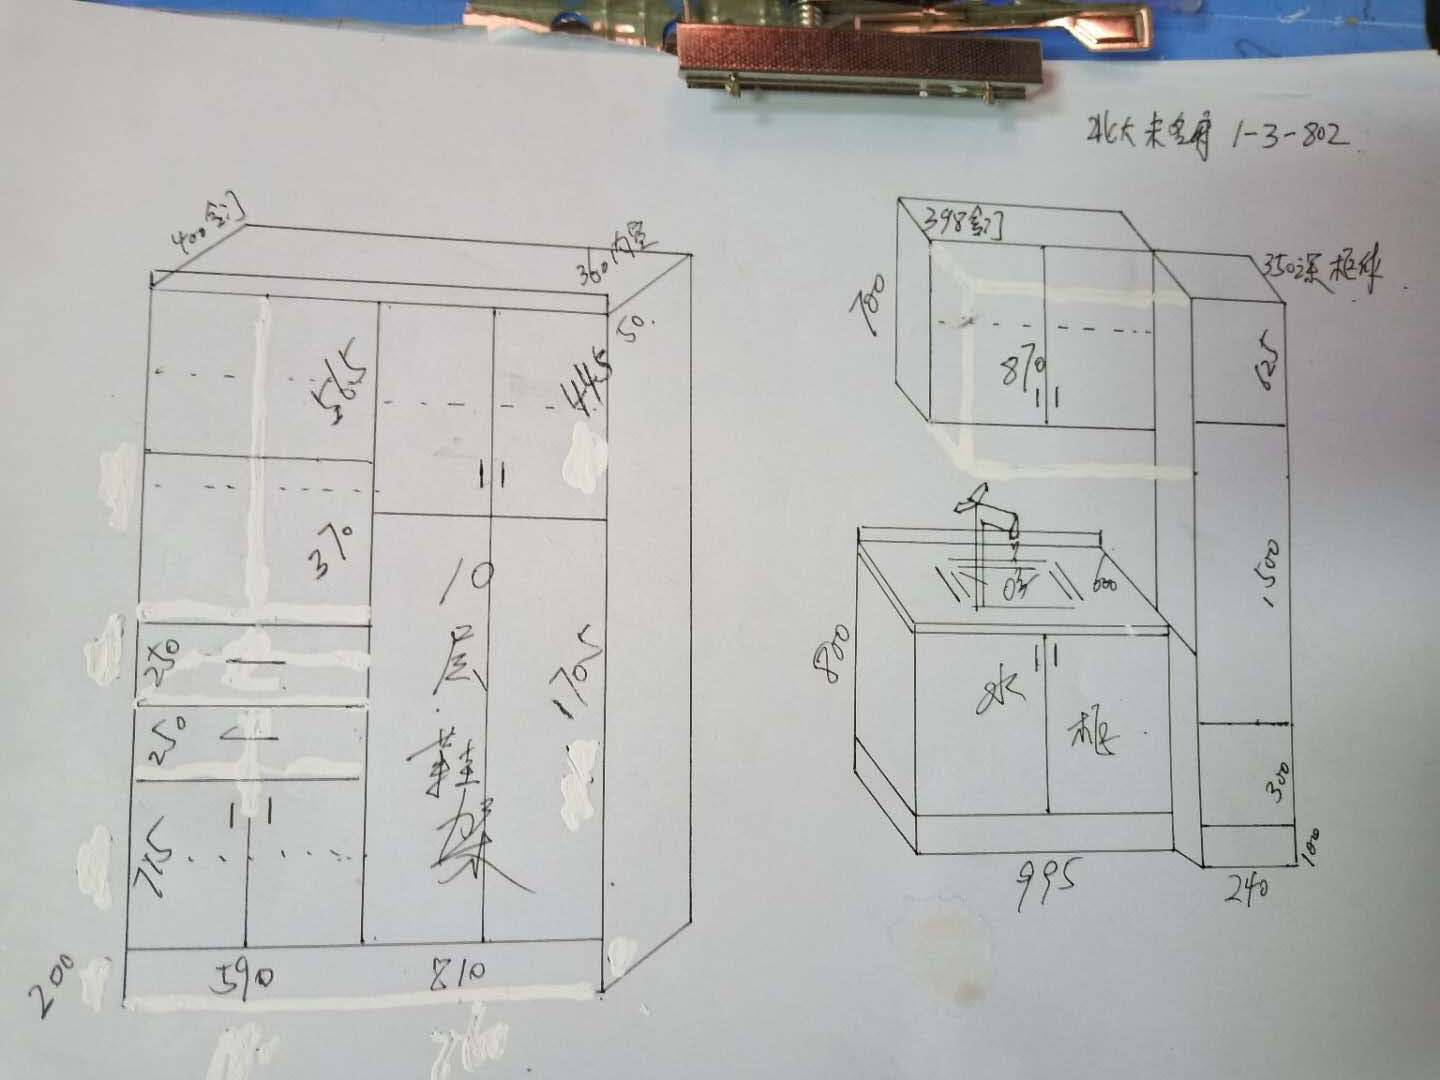 北大未名府 1-3-802
400含门
360内空
50.
565
445
370
10
层
鞋
架
250
250
1705
715
200
590
810
398含门
350深柜体
700
870
625
600
1500
800
水
柜
300
100
995
240